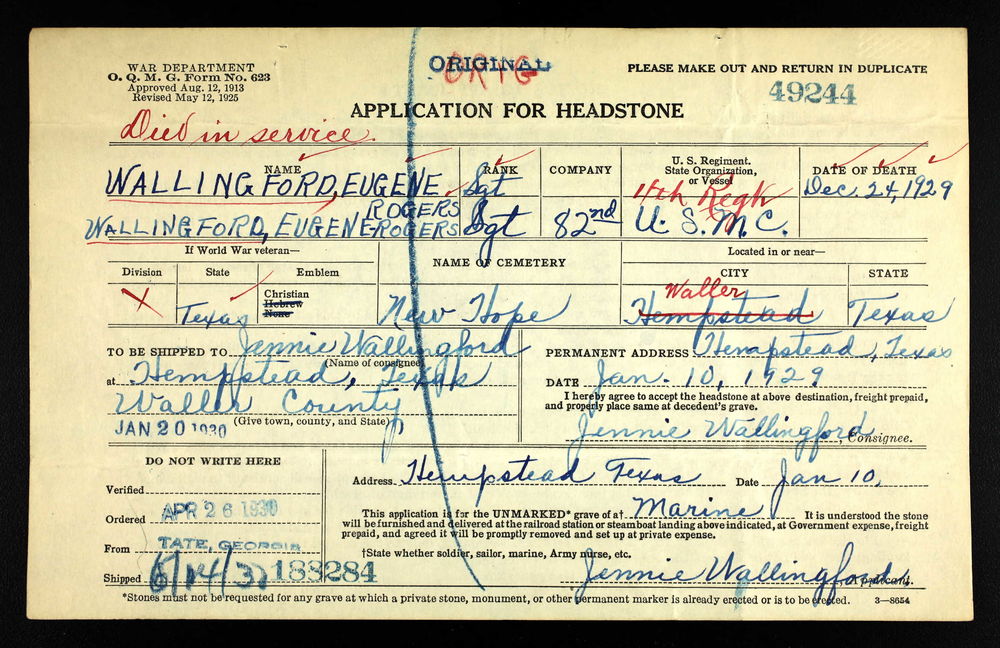 WAR DEPARTMENT
O. Q. M. G. Form No. 623
Approved Aug. 12, 1913
Revised May 12, 1925
ORIGINAL
ORIG
PLEASE MAKE OUT AND RETURN IN DUPLICATE
49244
APPLICATION FOR HEADSTONE
Died in service
NAME
RANK
COMPANY
U. S. Regiment.
State Organization,
or Vessel
DATE OF DEATH
WALLINGFORD, EUGENE
Sgt
4th Regt
Dec. 24, 1929
ROGERS
WALLINGFORD, EUGENE-ROGERS
Sgt
82nd
U. S. M. C.
If World War veteran—
NAME OF CEMETERY
Located in or near—
Division
State
Emblem
CITY
STATE
X
Texas
Christian
Hebrew
None
New Hope
Waller
Hempstead
Texas
TO BE SHIPPED TO Jennie Wallingford
(Name of consignee)
at Hempstead, Texas
Waller County
(Give town, county, and State)
JAN 20 1930
PERMANENT ADDRESS Hempstead, Texas
DATE Jan. 10, 1929
I hereby agree to accept the headstone at above destination, freight prepaid,
and properly place same at decedent's grave.
Jennie Wallingford, Consignee.
DO NOT WRITE HERE
Verified
Ordered APR 26 1930
From TATE, GEORGIA
Shipped 188284
Address Hempstead Texas Date Jan 10,
This application is for the UNMARKED* grave of a† Marine It is understood the stone
will be furnished and delivered at the railroad station or steamboat landing above indicated, at Government expense, freight
prepaid, and agreed it will be promptly removed and set up at private expense.
†State whether soldier, sailor, marine, Army nurse, etc.
Jennie Wallingford, Applicant.
*Stones must not be requested for any grave at which a private stone, monument, or other permanent marker is already erected or is to be erected. 3—8654